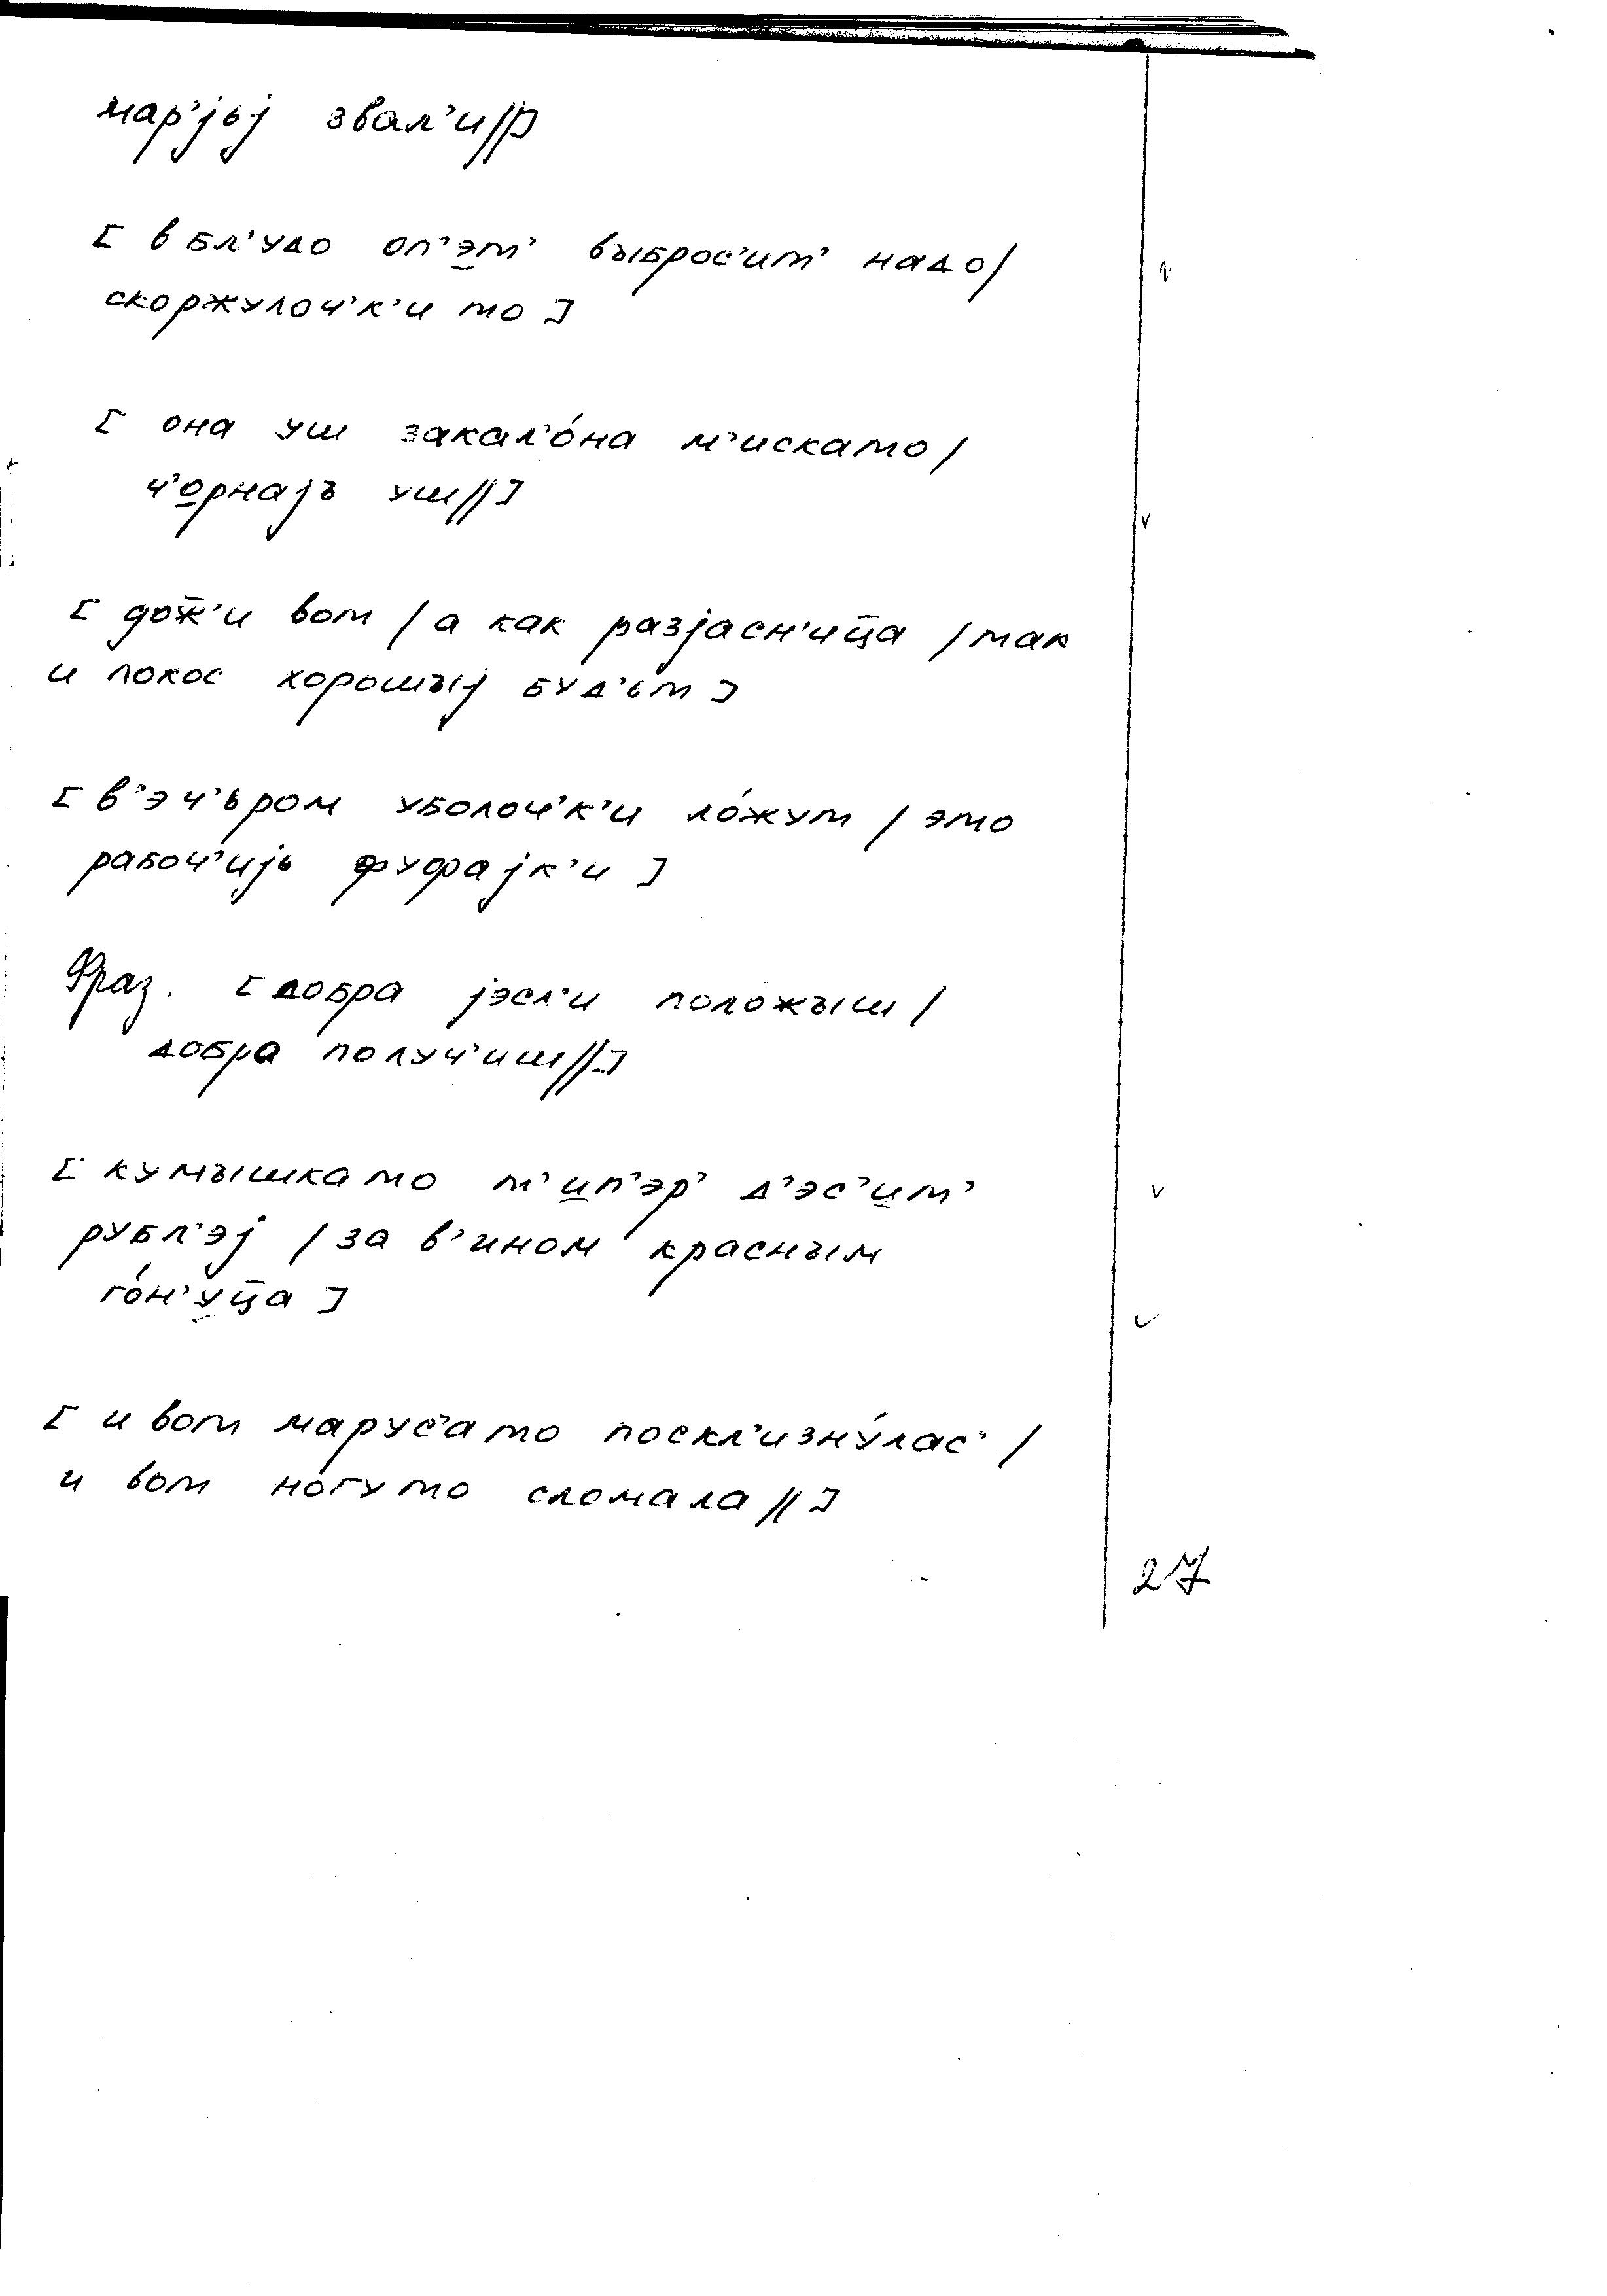 мар’jьj звал’и//]
[ в бл’удо оп’эт’ выброс’ит’ надо/
скоржулоч’к’и то ]
[ она уш закал’о́на м’искато /
ч’орнаjъ уш// ]
[ дож̄’и вот / а как разjасн’иц̄а / так
и покос хорошыj буд’ьт ]
[ в’эч’ьром уболоч’к’и ло́жут / это
рабоч’иjь фуфаjк’и ]
Фраз. [ добра jэсл’и положыш /
добра получ’иш// ]
[ кумышкато т’ип’эр’ д’эс’ит’
рубл’эj / за в’ином красным
го́н’уц̄а ]
[ и вот марус’ато поскл’изну́лас’ /
и вот но́гуто сломала // ]
27